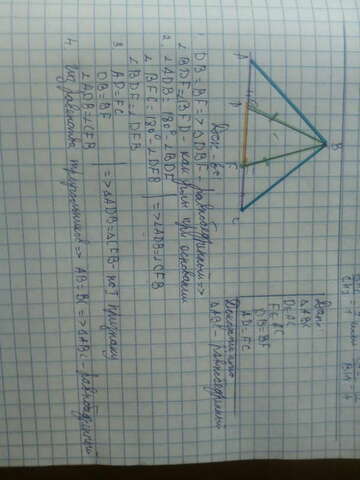 B
A D F C
Дано
△ABC
D∈AC
F∈AC
DB=BF
AD=FC
Доказать что
△ABC - равнобедренный
Док-во:
1. DB=BF=>△DBF-равнобедренный=>
∠BDF=∠BFD-как углы при основании
2. ∠ADB=180°-∠BDF
∠BFC=180°-∠DFB =>∠ADB=∠CFB
∠BDF=∠DFB
3. AD=FC
DB=BF =>△ADB=△CFB-по I признаку
∠ADB=∠CFB
4. Из равенства треугольников=> AB=BC=>△ABC-равнобедренный